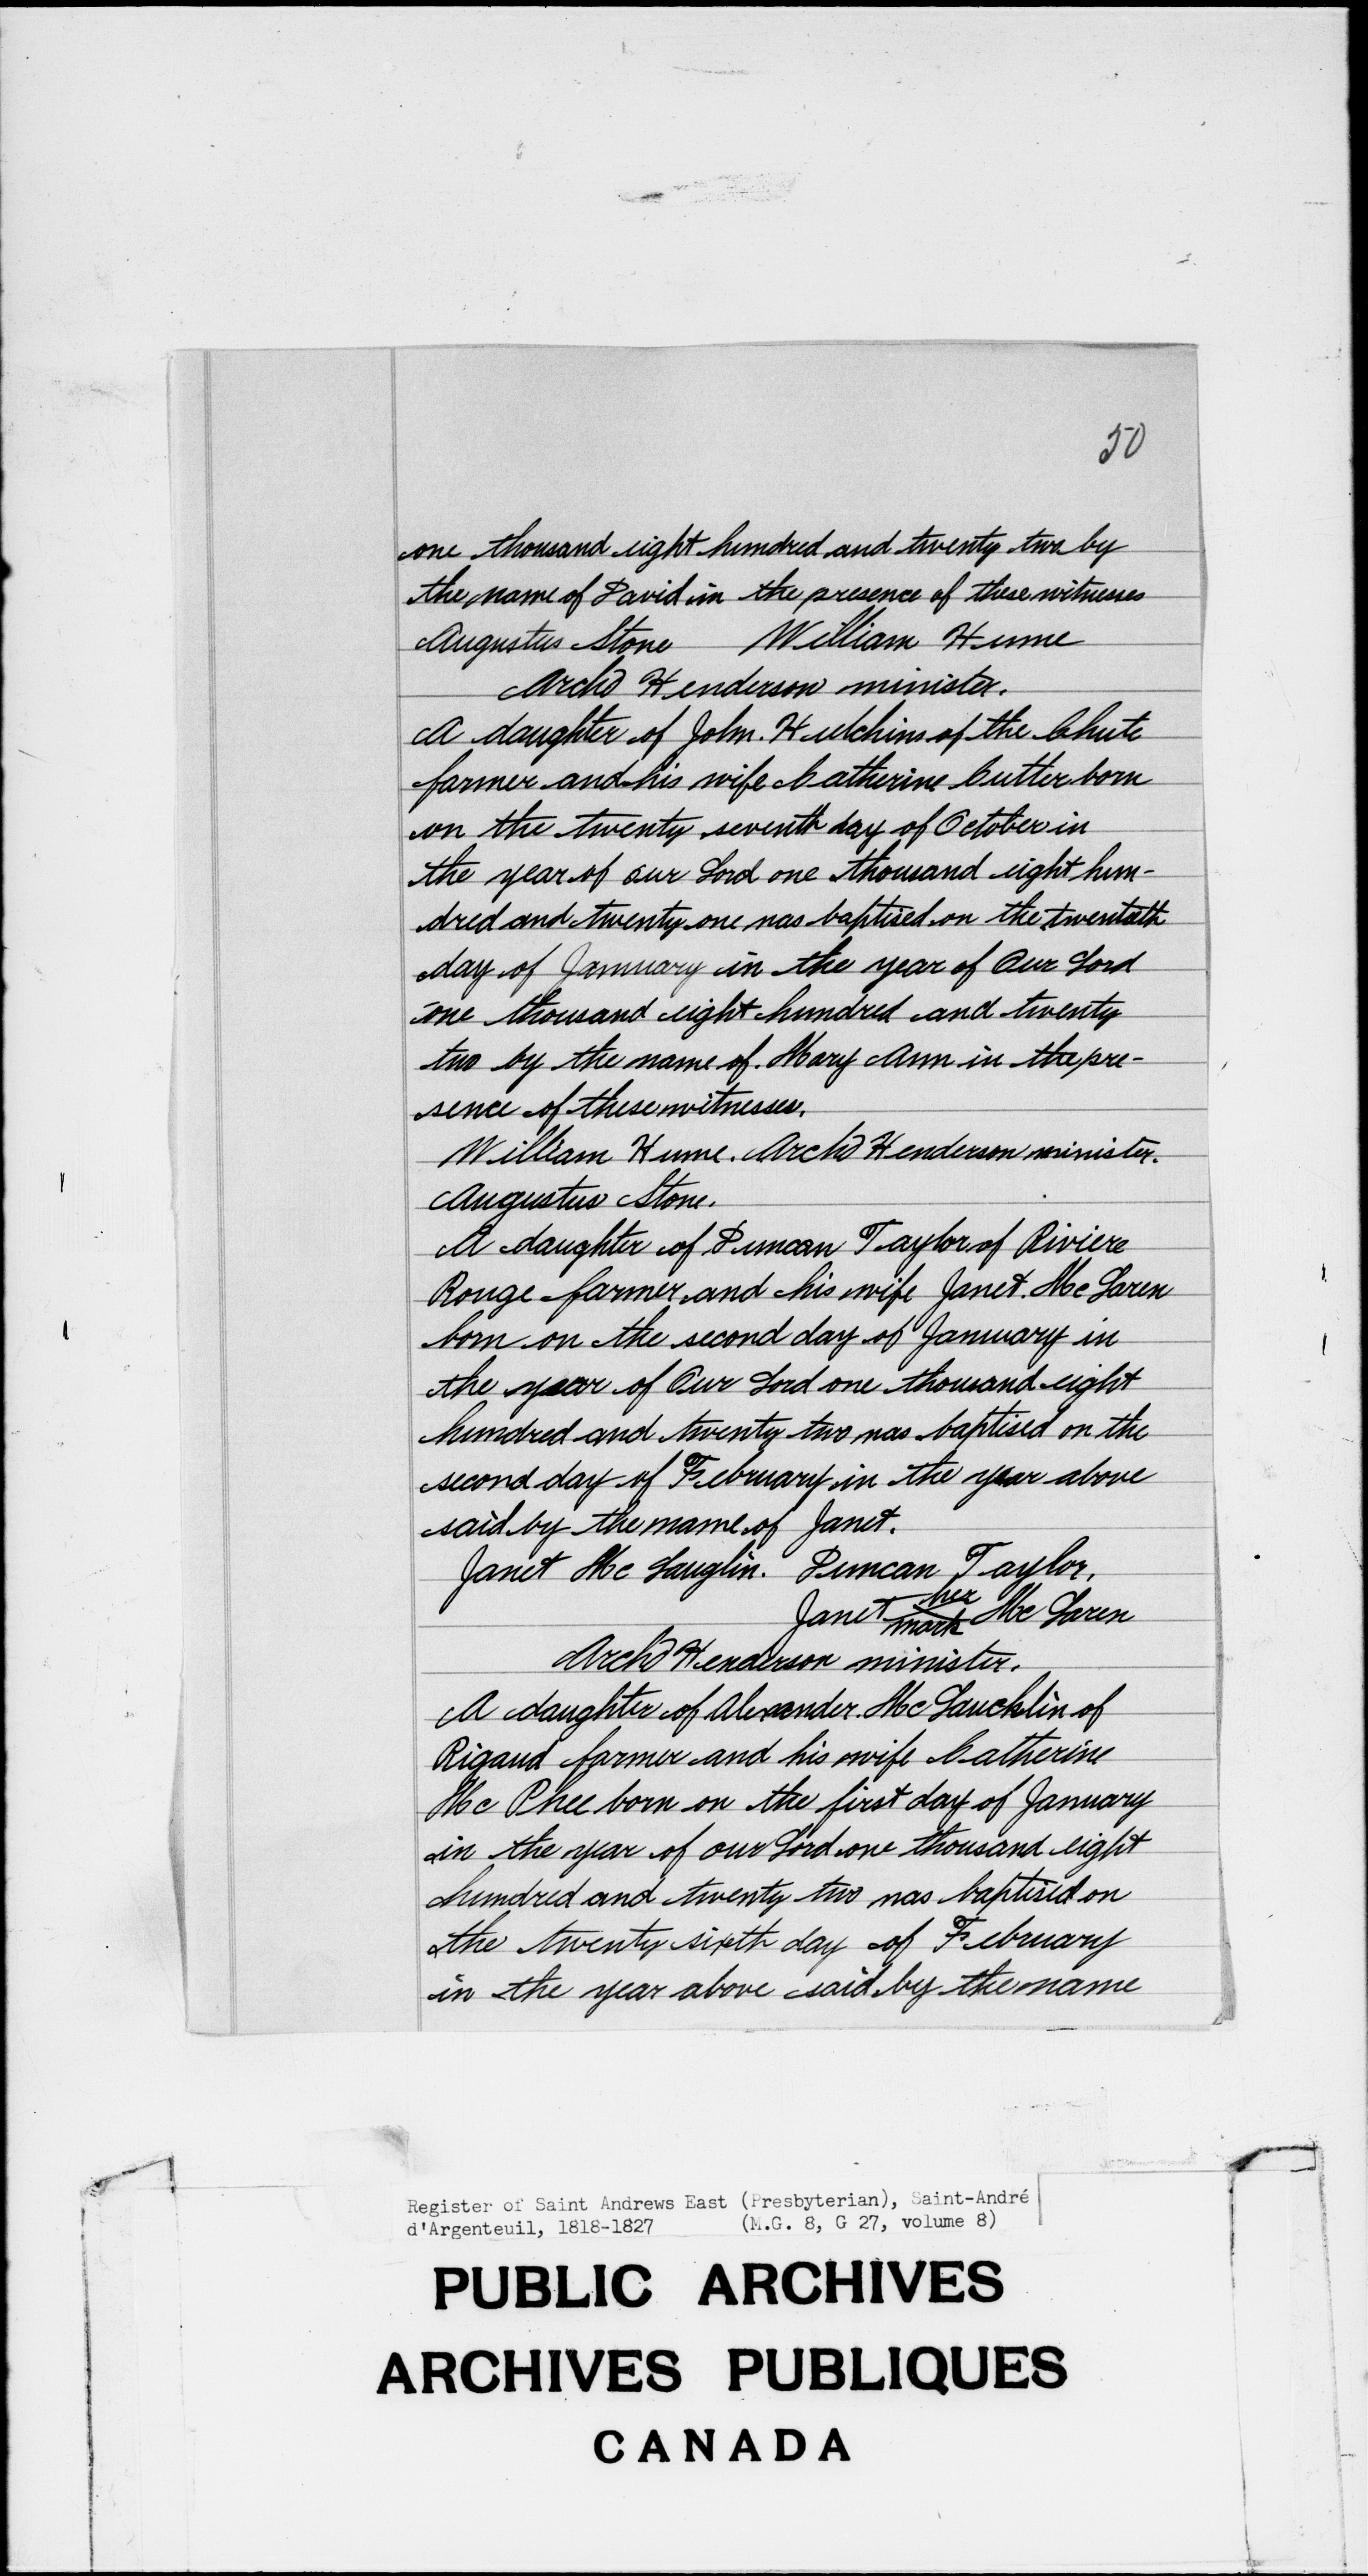 50
one thousand eight hundred and twenty two by
the name of David in the presence of these witnesses
Augustus Stone William Hume
Archd Henderson minister.
A daughter of John Hutchins of the Chute
farmer and his wife Catherine Cutter born
on the twenty seventh day of October in
the year of our Lord one thousand eight hun-
dred and twenty one was baptised on the twentieth
day of January in the year of Our Lord
one thousand eight hundred and twenty
two by the name of Mary Ann in the pre-
sence of these witnesses.
William Hume. Archd Henderson minister.
Augustus Stone.
A daughter of Duncan Taylor of Riviere
Rouge farmer and his wife Janet McLaren
born on the second day of January in
the year of Our Lord one thousand eight
hundred and twenty two was baptised on the
second day of February in the year above
said by the name of Janet.
Janet McLauglin. Duncan Taylor.
Janet her mark McLaren
Archd Henderson minister.
A daughter of Alexander McLaucklin of
Rigaud farmer and his wife Catherine
McPhee born on the first day of January
in the year of our Lord one thousand eight
hundred and twenty two was baptised on
the twenty sixth day of February
in the year above said by the name
Register of Saint Andrews East (Presbyterian), Saint-André
d'Argenteuil, 1818-1827 (M.G. 8, G 27, volume 8)
PUBLIC ARCHIVES
ARCHIVES PUBLIQUES
CANADA